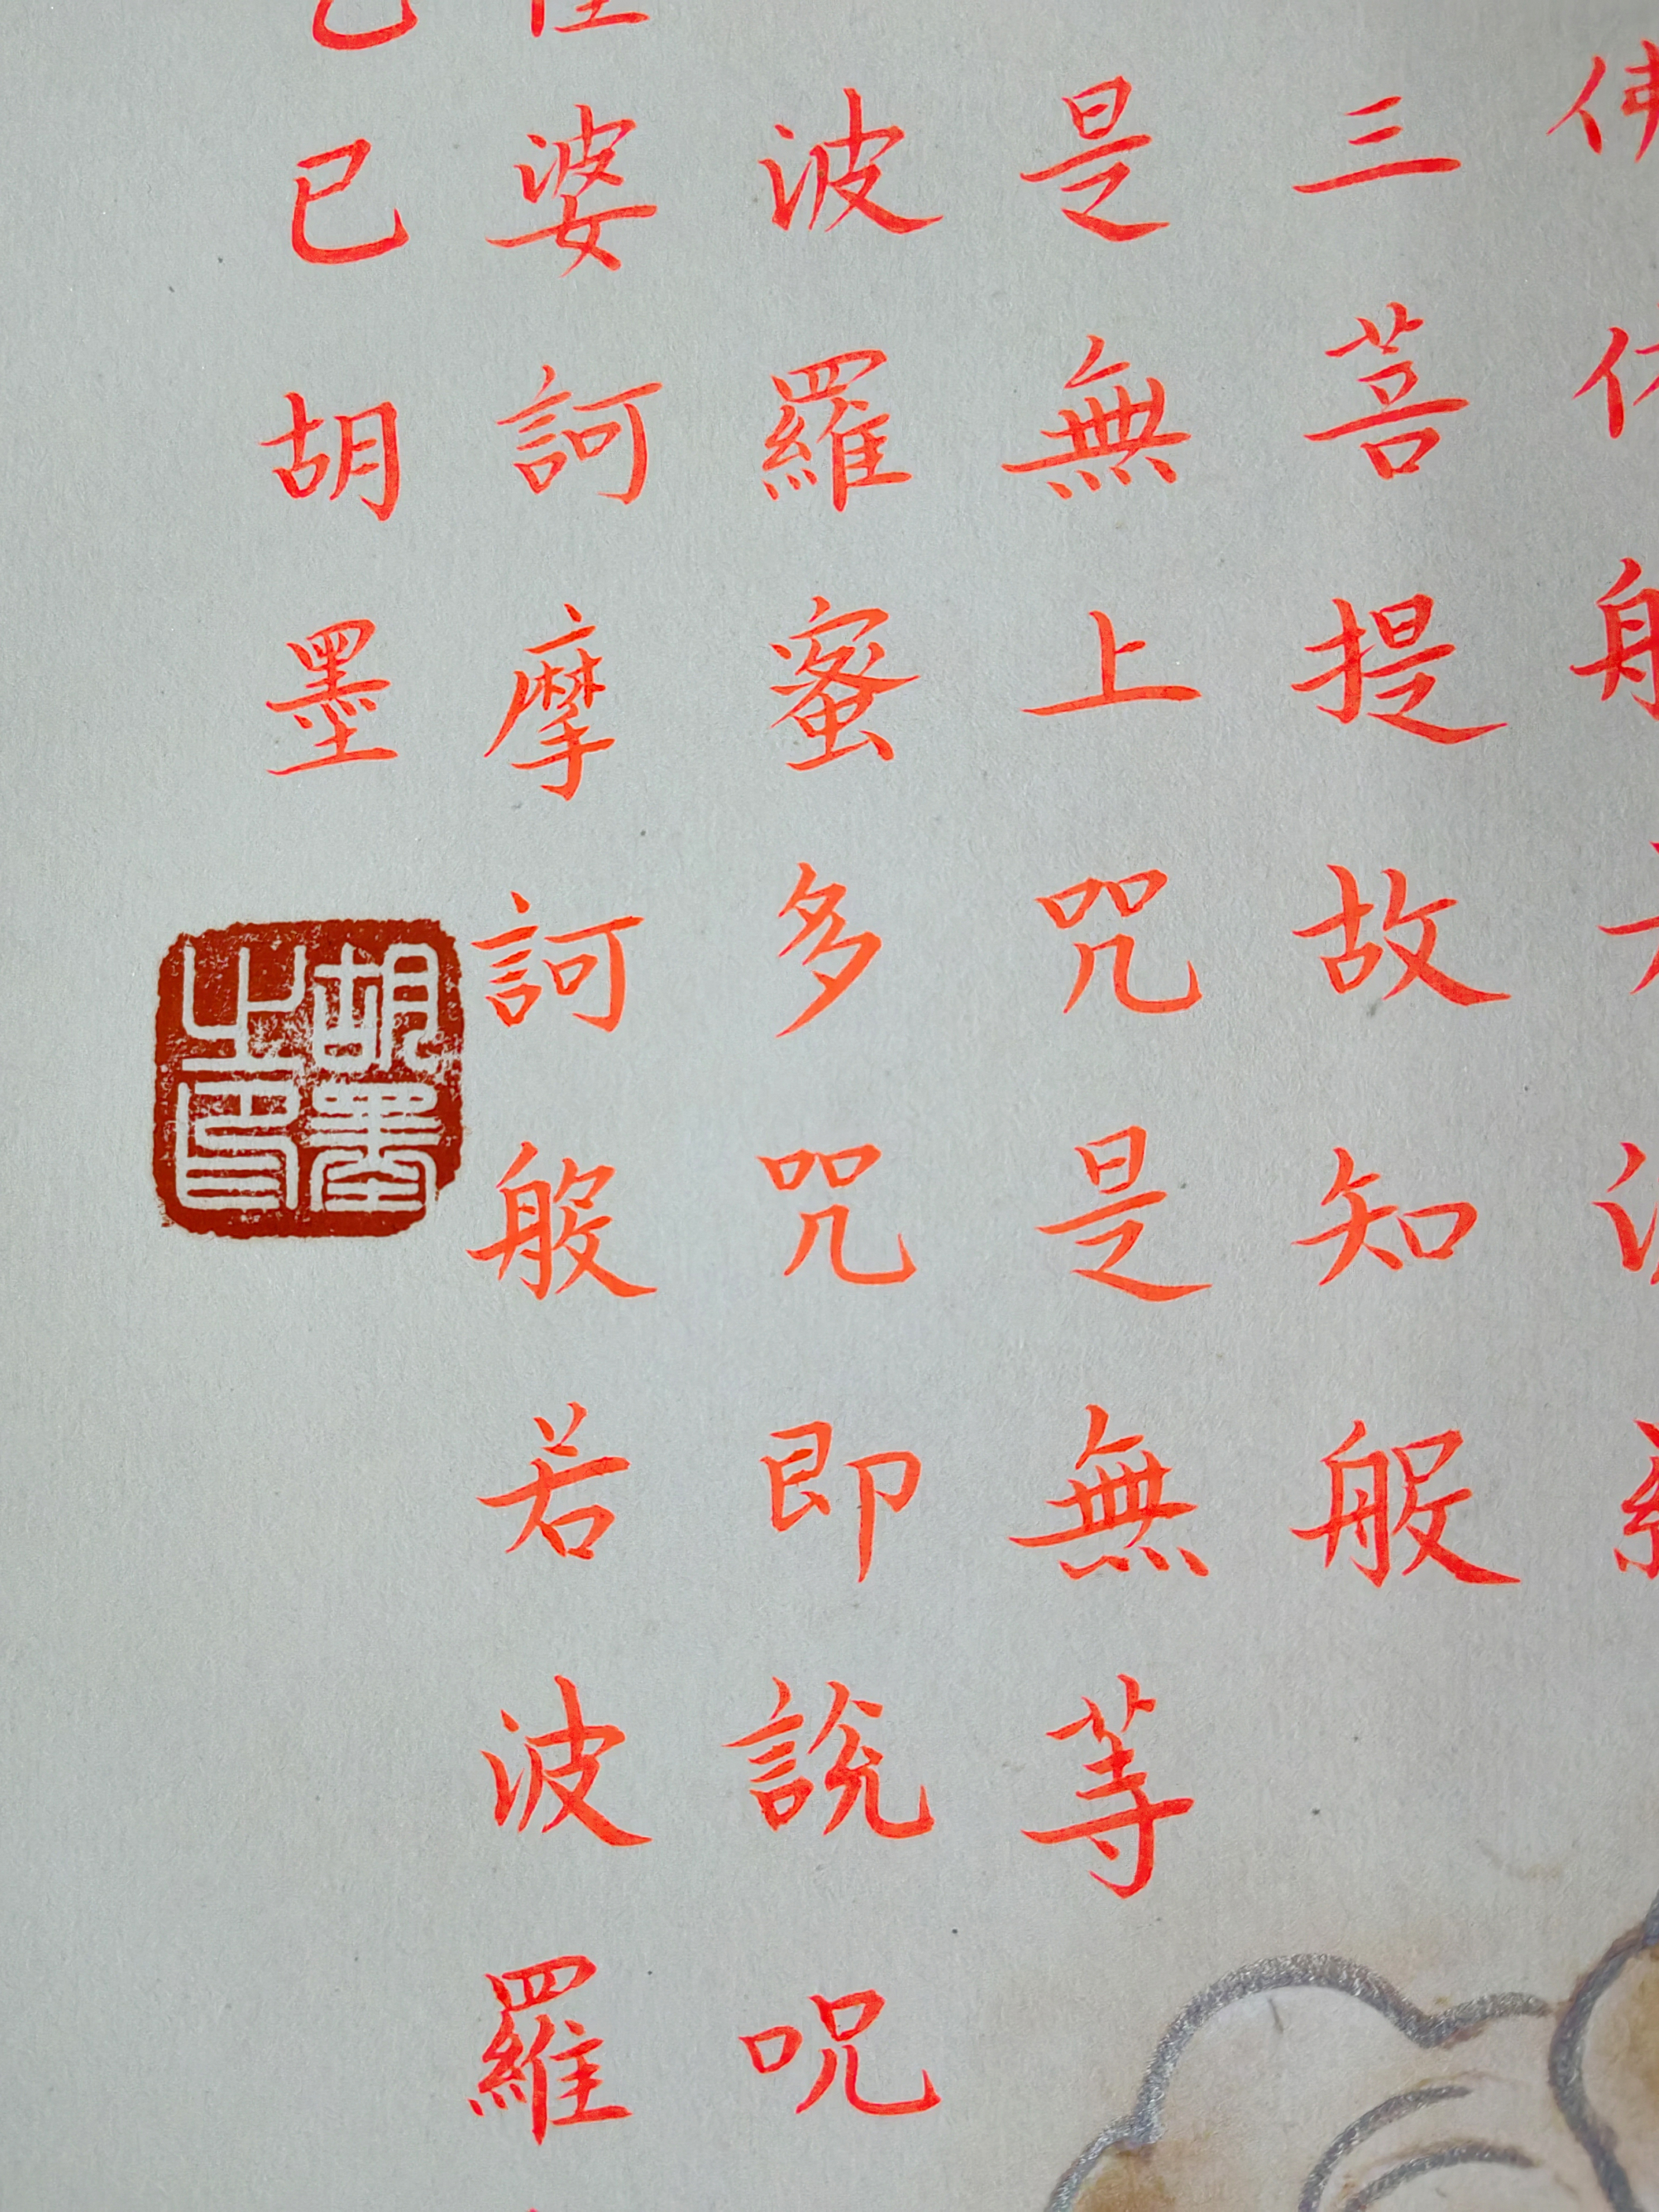 佛
三菩提故知般
是無上咒是無等
波羅蜜多咒即說呪
婆訶摩訶般若波羅
已胡墨
胡墨之印